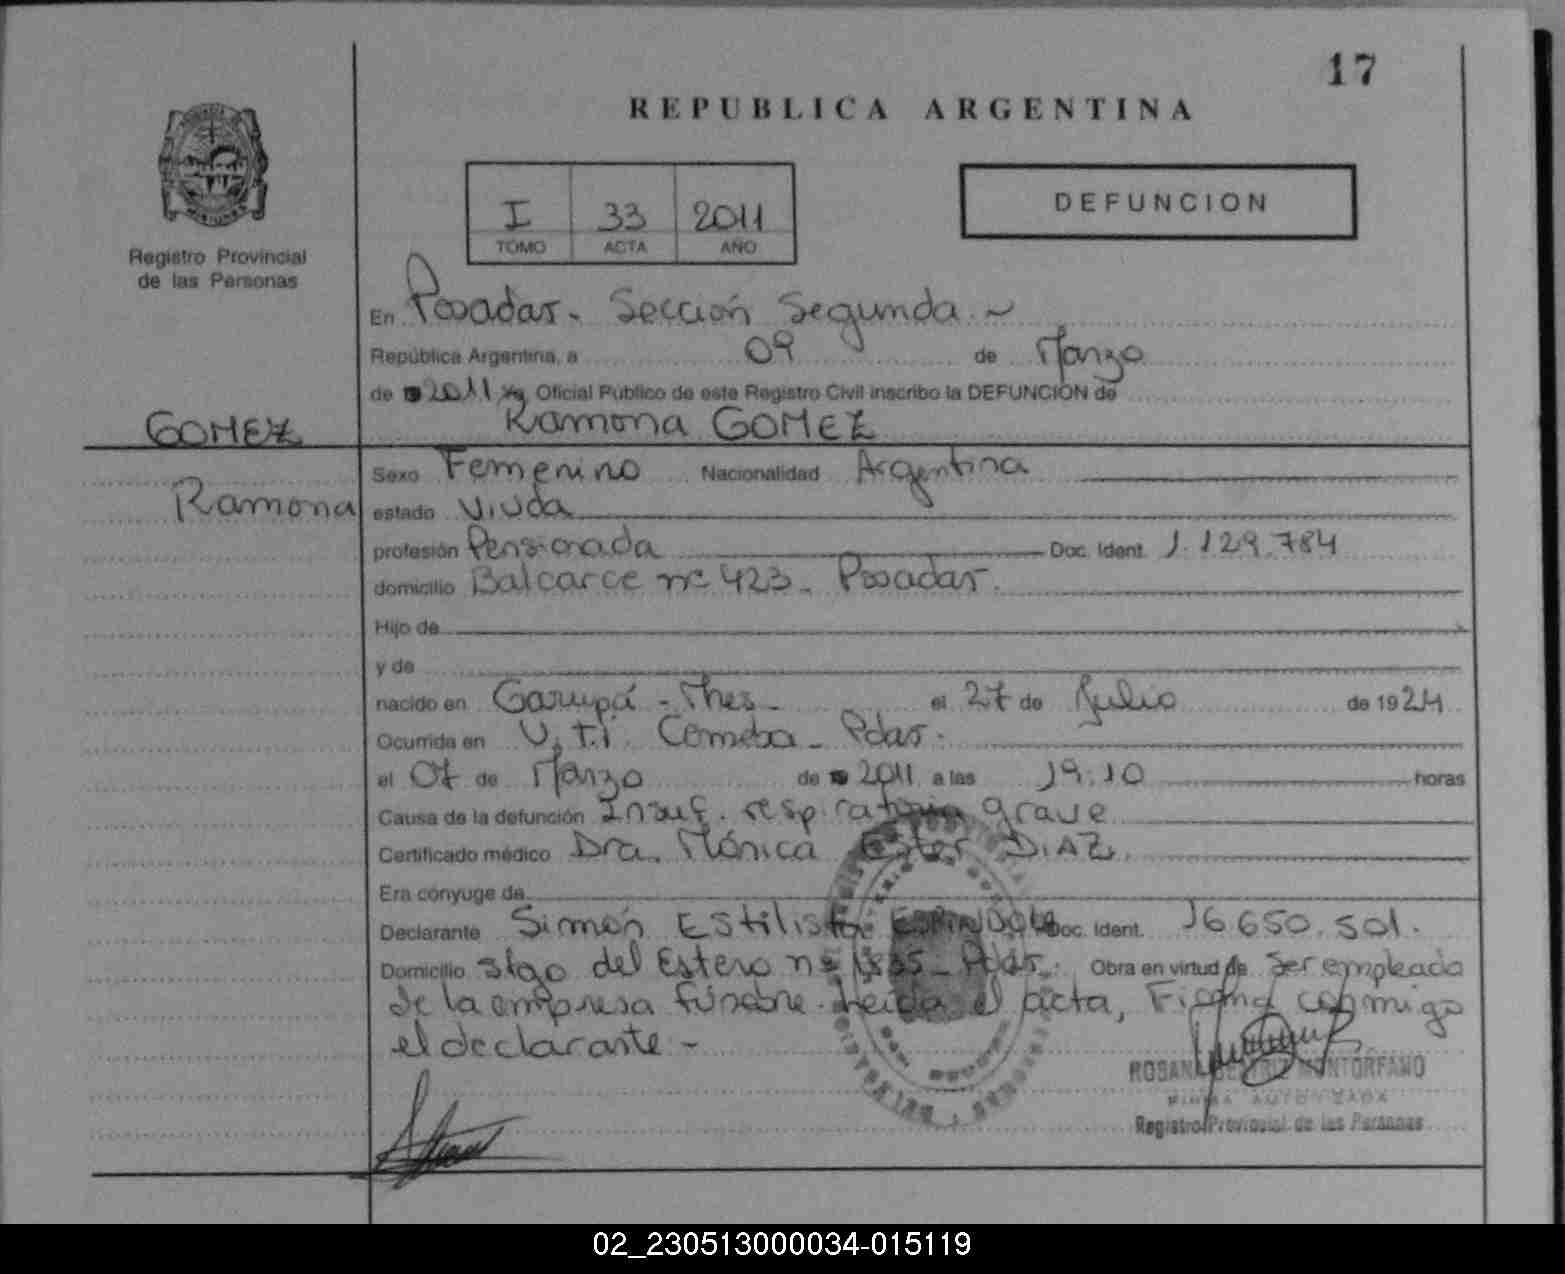 17
REPUBLICA ARGENTINA
I 33 2011
TOMO ACTA AÑO
DEFUNCION
Registro Provincial
de las Personas
En Posadas - Sección Segunda
República Argentina, a 09 de Marzo
de 2011 Yo, Oficial Público de este Registro Civil inscribo la DEFUNCION de
GOMEZ Ramona GOMEZ
Sexo Femenino Nacionalidad Argentina
Ramona estado Viuda
profesión Pensionada Doc. Ident. 1.129.784
domicilio Balcarce nº 423 - Posadas.
Hijo de
y de
nacido en Garupá - Mnes - el 27 de Julio de 1924
Ocurrida en U.T.I. Cemeba - Pdas.
el 07 de Marzo de 2011 a las 19:10 horas
Causa de la defunción Insuf. respiratoria grave
Certificado médico Dra. Mónica Ester DIAZ
Era cónyuge de
Declarante Simón Estilista ESPINDOLA Doc. Ident. 16.650.501.
Domicilio Stgo del Estero nº Pdas. Obra en virtud de ser empleado
de la empresa fúnebre. Leida el acta, Firma conmigo
el declarante -
ROSANA BEATRIZ MONTORFANO
FIRMA AUTORIZADA
Registro Provincial de las Personas
02_230513000034-015119